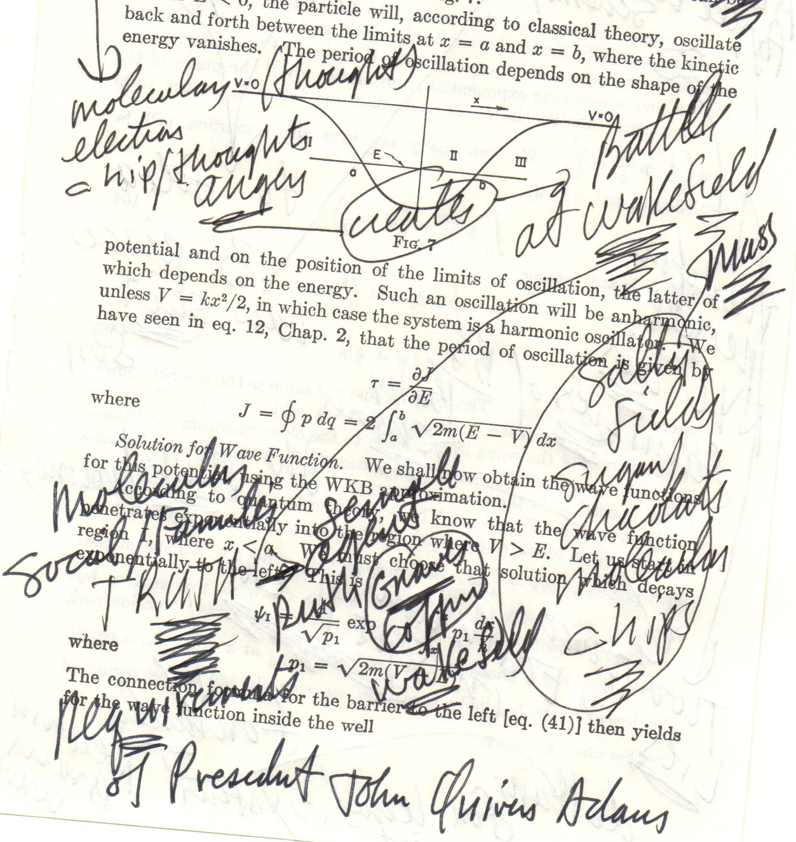 the particle will, according to classical theory, oscillate
back and forth between the limits at x = a and x = b, where the kinetic
energy vanishes. The period of oscillation depends on the shape of the
molecular (thoughts)
V=0
x
V=0
electron
chip/thoughts
angers
I
E
II
III
a
b
creates
Battle
at Wakefield
FIG. 7
mass
potential and on the position of the limits of oscillation, the latter of
which depends on the energy. Such an oscillation will be anharmonic,
unless V = kx²/2, in which case the system is a harmonic oscillator. We
have seen in eq. 12, Chap. 2, that the period of oscillation is given by
τ = ∂J/∂E
where
J = ∮ p dq = 2 ∫ₐᵇ √2m(E − V) dx
salty
fields
sugar/
chocolats
molecular
chips
Solution for Wave Function. We shall now obtain the wave functions
for this potential using the WKB approximation.
According to quantum theory, we know that the wave function
penetrates exponentially into the region where V > E. Let us start in
region I, where x < a. We must choose that solution which decays
exponentially to the left. This is
molecular
social/Families
TRUSH
push
Grave
coffin
Wakefield
ψ₁ = √p₁ exp p₁ dx
where
p₁ = √2m(V
The connection formula for the barrier to the left [eq. (41)] then yields
for the wave function inside the well
requirements
of President John Quives Adams